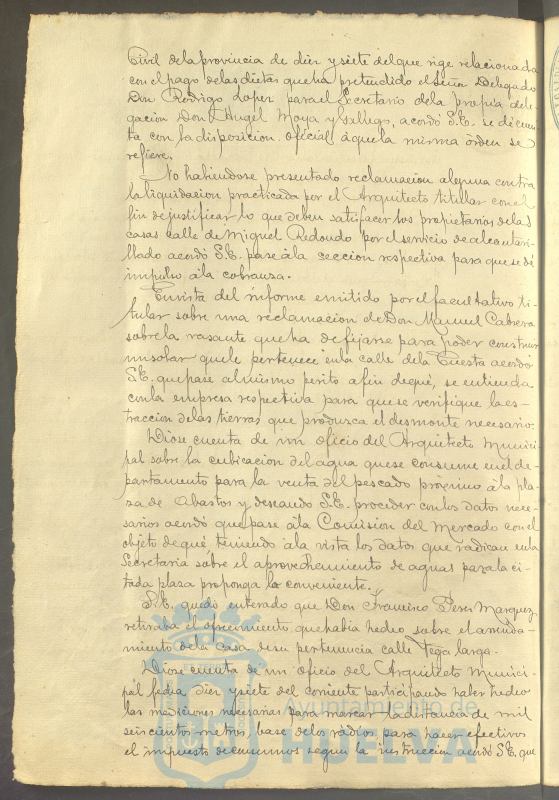 Civil de la provincia de diez y siete del que rige relacionada
con el pago de las dietas que ha pretendido el señor Delegado
Don Rodrigo Lopez para el Secretario de la propia dele-
gacion Don Angel Moya y Gallego, acordó S.E. se dé cuen-
ta con la disposicion oficial á que la misma órden se
refiere.
No habiendose presentado reclamacion alguna contra
la liquidacion practicada por el Arquitecto titular con el
fin de justificar lo que deben satisfacer los propietarios de las
casas calle de Miguel Redondo por el servicio de alcantari-
llado acordó S.E. pase á la seccion respectiva para que se dé
impulso á la cobranza.
En vista del informe emitido por el facultativo ti-
tular sobre una reclamacion de Don Manuel Cabrera
sobre la rasante que ha de fijarse para poder construir
un solar que le pertenece en la calle de la Cuesta acordó
S.E. que pase al mismo perito a fin de que, se entienda
con la empresa respectiva para que se verifique la es-
traccion de las tierras que produzca el desmonte necesario.
Diose cuenta de un oficio del Arquitecto Munici-
pal sobre la cubicacion del agua que se consume en el de-
partamento para la venta del pescado proximo á la pla-
za de Abastos y deseando S.E. proceder con los datos nece-
sarios acordó que pase á la Comision del Mercado con el
objeto de qué, teniendo á la vista los datos que radican en la
Secretaria sobre el aprovechamiento de aguas para la ci-
tada plaza proponga lo conveniente.
S.E. quedó enterado que Don Francisco Peres Marquez
retiraba el ofrecimiento que habia hecho sobre el arrenda-
miento de la casa de su pertenencia calle Vega larga.
Diose cuenta de un oficio del Arquitecto Munici-
pal fecha diez y siete del corriente participando haber hecho
las mediciones necesarias para marcar la distancia de mil
seiscientos metros, base de los rádios para hacer efectivos
el impuesto de consumos segun la instruccion acordó S.E. que
Ayuntamiento de
HUELVA